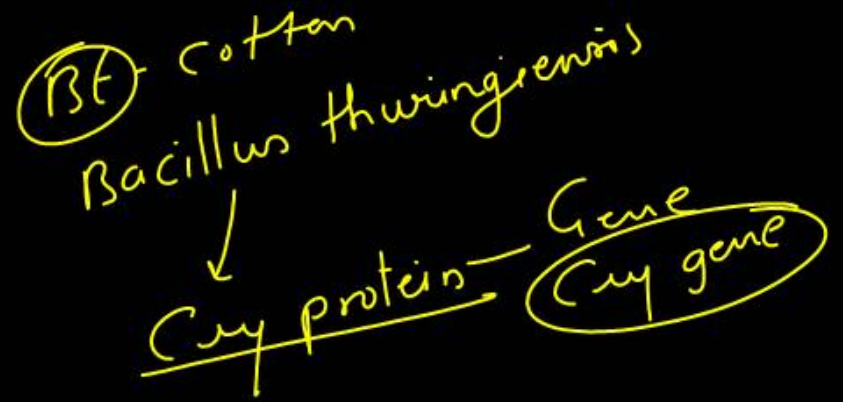 Bt - cotton
Bacillus thuringiensis
Cry protein - Gene
Cry gene